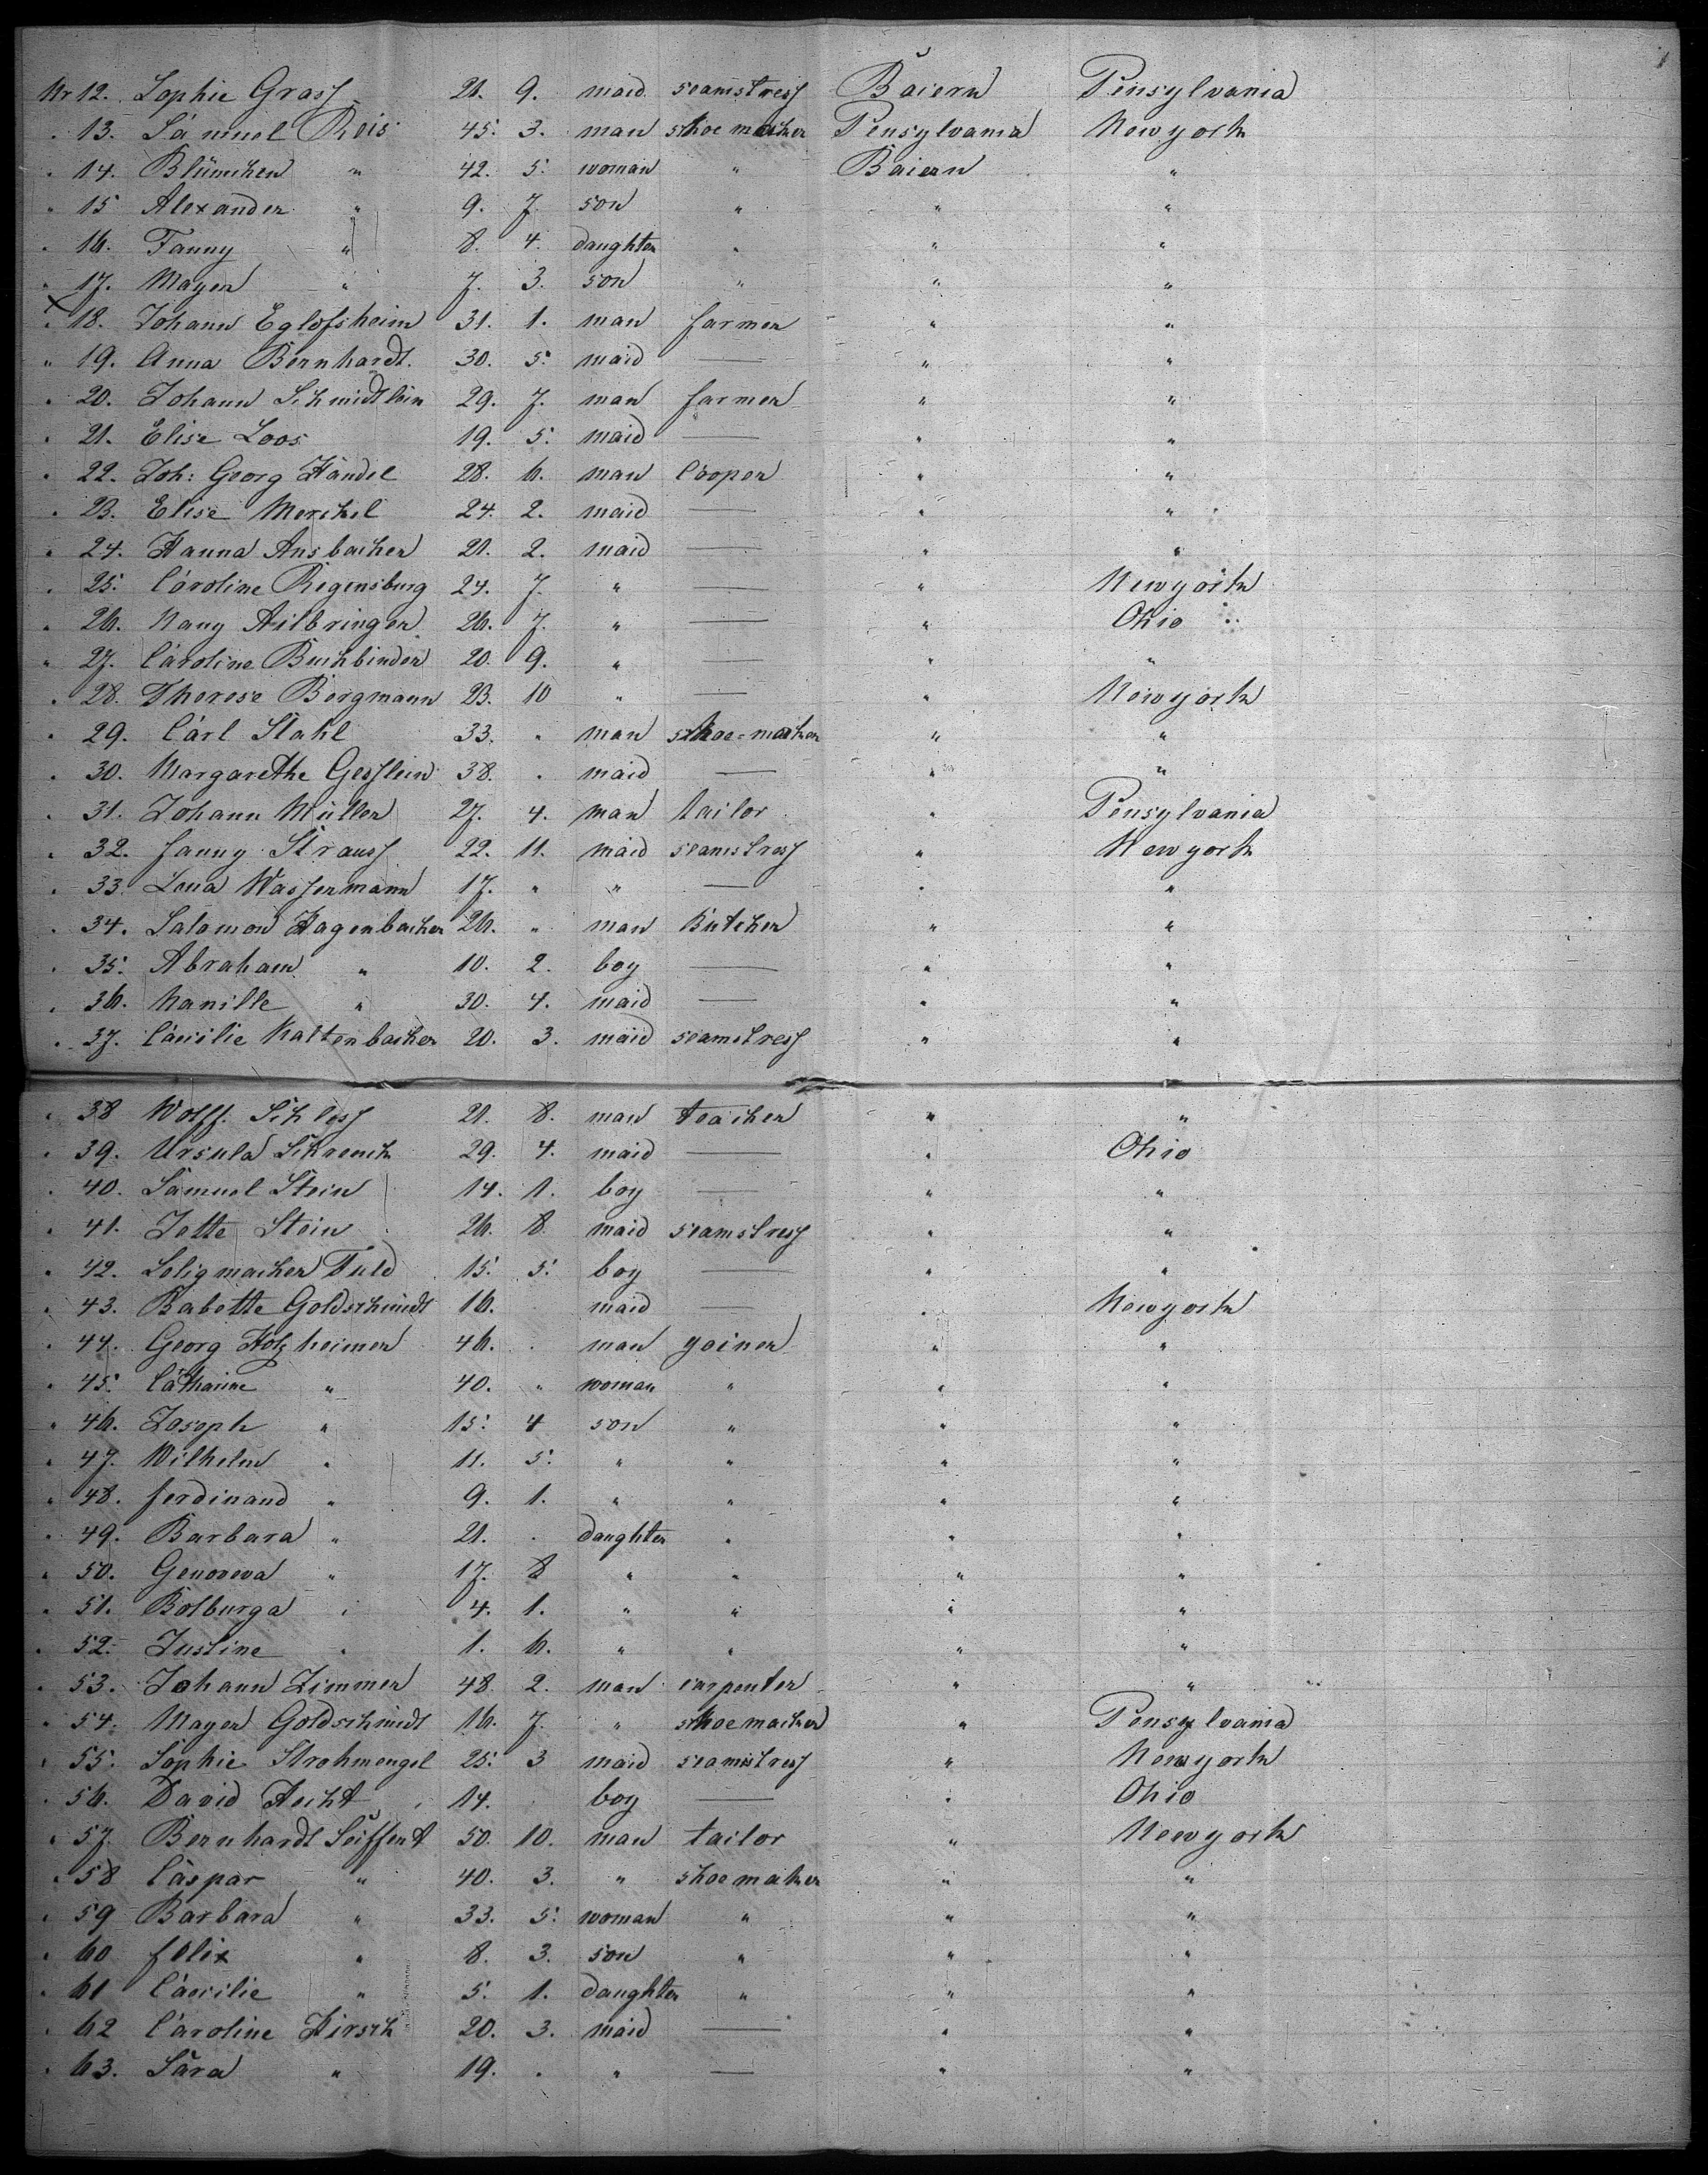 Nr 12. Sophie Grass 21. 9. maid seamstress Baiern Pensylvania
" 13. Samuel Reis 45. 3. man schoe macker Pensylvania Newyork
" 14. Blümchen " 42. 5. woman " Baiern "
" 15 Alexander " 9. 7. son " " "
" 16. Fanny " 8. 4. daughter " " "
" 17. Mayer " 7. 3. son " " "
x " 18. Johann Eglofsheim 31. 1. man farmer " "
" 19. Anna Bernhardt. 30. 5. maid — " "
" 20. Johann Schmidtlein 29. 7. man farmer " "
" 21. Elise Loos 19. 5. maid — " "
" 22. Joh: Georg Händel 28. 6. man Cooper " "
" 23. Elise Merckel 24. 2. maid — " "
" 24. Hanna Ansbacher 21. 2. maid — " "
" 25. Caroline Regensburg 24. 7. " — " Newyork
" 26. Nany Hilbringer 26. 7. " — " Ohio
" 27. Caroline Buchbinder 20. 9. " — " "
" 28. Therese Bergmann 23. 10 " — " Newyork
" 29. Carl Stahl 33. " man schoe-macker " "
" 30. Margarethe Gesslein 38. " maid — " "
" 31. Johann Müller 27. 4. man tailor " Pensylvania
" 32. Fanny Strauss 22. 11. maid seamstress " Newyork
" 33. Lena Wassermann 17. " " — " "
" 34. Salamon Hagenbacher 26. " man Butcher " "
" 35. Abraham " 10. 2. boy — " "
" 36. Nanille " 30. 4. maid — " "
" 37. Cäcilie Kattenbacher 20. 3. maid seamstress " "
" 38 Wolff. Schloss 21. 8. man teacher " "
" 39. Ursula Schrenck 29. 4. maid — " Ohio
" 40. Samuel Stein 14. 1. boy — " "
" 41. Jette Stein 26. 8. maid seamstress " "
" 42. Seligmacher Fuld 15. 5. boy — " "
" 43. Babette Goldschmidt 16. maid — " Newyork
" 44. Georg Holzheimer 46. " man yoiner " "
" 45. Catharine " 40. " woman " " "
" 46. Joseph " 15. 4 son " " "
" 47. Wilhelm " 11. 5. " " " "
" 48. Ferdinand " 9. 1. " " " "
" 49. Barbara " 21. " daughter " " "
" 50. Genoveva " 17. 8 " " " "
" 51. Bolburga " 4. 1. " " " "
" 52. Justine " 1. 6. " " " "
" 53. Johann Zimmer 48. 2. man carpenter " "
" 54. Mayer Goldschmidt 16. 7. " schoemacker " Pensylvania
" 55. Sophie Strohmengel 25. 3 maid seamstress " Newyork
" 56. David Hecht 14. " boy — " Ohio
" 57. Bernhardt Seiffert 50. 10. man tailor " Newyork
" 58 Caspar " 40. 3. " shoemaker " "
" 59 Barbara " 33. 5. woman " " "
" 60 Felix " 8. 3. son " " "
" 61 Cäcilie " 5. 1. daughter " " "
" 62 Caroline Hirsch 20. 3. maid — " "
" 63. Sara " 19. " " — " "